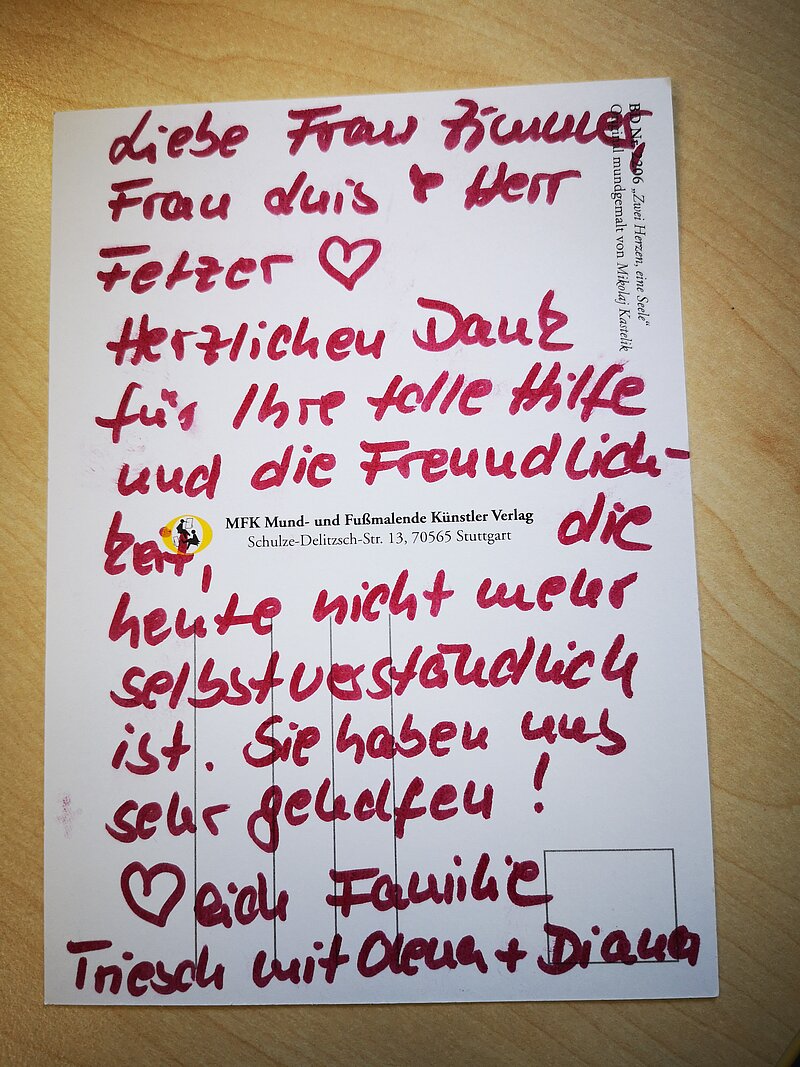 Liebe Frau Zimmer,
Frau Luis & Herr
Fetzer ♡
Herzlichen Dank
für Ihre tolle Hilfe
und die Freundlich-
keit, die
MFK Mund- und Fußmalende Künstler Verlag
Schulze-Delitzsch-Str. 13, 70565 Stuttgart
heute nicht mehr
selbstverständlich
ist. Sie haben uns
sehr geholfen!
♡lich Familie
Triesch mit Olena + Diana
BD Nr. 206 „Zwei Herzen, eine Seele“
Original mundgemalt von Mikolaj Kastelik